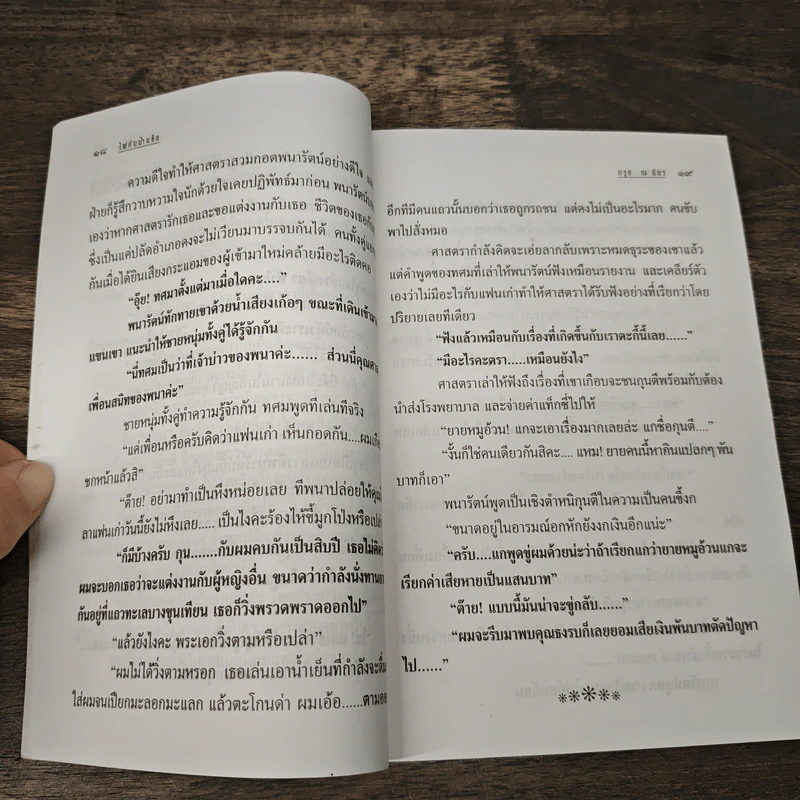 ๑๘ ไฟกับน้ำแข็ง
ความดีใจทำให้ศาสตราสวมกอดพนารัตน์อย่างดีใจ
ฝ่ายก็รู้สึกวาบหวามใจนักด้วยใจเคยปฏิพัทธ์มาก่อน พนารัตน์
เองว่าหากศาสตรารักเธอและขอแต่งงานกับเธอ ชีวิตของเธอ
ซึ่งเป็นแค่ปลัดอำเภอคงจะไม่เวียนมาบรรจบกันได้ คนทั้งคู่
กันเมื่อได้ยินเสียงกระแอมของผู้เข้ามาใหม่คล้ายมีอะไรติดคอ
“อุ๊ย! ทศมาตั้งแต่มาเมื่อใดคะ....”
พนารัตน์ทักทายเขาด้วยน้ำเสียงเก้อๆ ขณะที่เดินเข้า
แขนเขา แนะนำให้ชายหนุ่มทั้งคู่ได้รู้จักกัน
“นี่ทศมเป็นว่าที่เจ้าบ่าวของพนาค่ะ...... ส่วนนี่คุณ
เพื่อนสนิทของพนาค่ะ”
ชายหนุ่มทั้งคู่ทำความรู้จักกัน ทศมพูดทีเล่นทีจริง
“แค่เพื่อนหรือครับคิดว่าแฟนเก่า เห็นกอดกัน....ผม
ชกหน้าแล้วสิ”
“ต๊าย! อย่ามาทำเป็นหึงหน่อยเลย ทีพนาปล่อยให้คุณ
ลาแฟนเก่าวันนี้ยังไม่หึงเลย..... เป็นไงคะร้องไห้ขี้มูกโป่งหรือเปล่า
“ก็มีบ้างครับ กุน.......กับผมคบกันเป็นสิบปี เธอไม่คิด
ผมจะบอกเธอว่าจะแต่งงานกับผู้หญิงอื่น ขนาดว่ากำลังนั่งทาน
กันอยู่ที่แถวทะเลบางขุนเทียน เธอก็วิ่งพรวดพราดออกไป”
“แล้วยังไงคะ พระเอกวิ่งตามหรือเปล่า”
“ผมไม่ได้วิ่งตามหรอก เธอเล่นเอาน้ำเย็นที่กำลังจะดื่ม
ใส่ผมจนเปียกมะลอกมะแลก แล้วตะโกนด่า ผมเอ้อ......ตาม
กรุช ณ ฉัตร ๑๙
อีกทีมีคนแถวนั้นบอกว่าเธอถูกรถชน แต่คงไม่เป็นอะไรมาก คนขับ
พาไปสั่งหมอ
ศาสตรากำลังคิดจะเอ่ยลากลับเพราะหมดธุระของเขาแล้ว
แต่คำพูดของทศมที่เล่าให้พนารัตน์ฟังเหมือนรายงาน และเคลียร์ตัว
เองว่าไม่มีอะไรกับแฟนเก่าทำให้ศาสตราได้รับฟังอย่างที่เรียกว่าโดย
ปริยายเลยทีเดียว
“ฟังแล้วเหมือนกับเรื่องที่เกิดขึ้นกับเราตะกี้นี้เลย......”
“มีอะไรคะตรา.....เหมือนยังไง”
ศาสตราเล่าให้ฟังถึงเรื่องที่เขาเกือบจะชนกุนตีพร้อมกับต้อง
นำส่งโรงพยาบาล และจ่ายค่าแท็กซี่ไปให้
“ยายหมูอ้วน! แกจะเอาเรื่องมากเลยล่ะ แกชื่อกุนตี....”
“งั้นก็ใช่คนเดียวกันสิคะ.... แหม! ยายคนนี้หากินแปลกๆ พัน
บาทก็เอา”
พนารัตน์พูดเป็นเชิงตำหนิกุนตีในความเป็นคนขี้งก
“ขนาดอยู่ในอารมณ์อกหักยังงกเงินอีกแน่ะ”
“ครับ....แกพูดขู่ผมด้วยน่ะว่าถ้าเรียกแกว่ายายหมูอ้วนแกจะ
เรียกค่าเสียหายเป็นแสนบาท”
“ต๊าย! แบบนี้มันน่าจะขู่กลับ......”
“ผมจะรีบมาพบคุณธงรบก็เลยยอมเสียเงินพันบาทตัดปัญหา
ไป......”